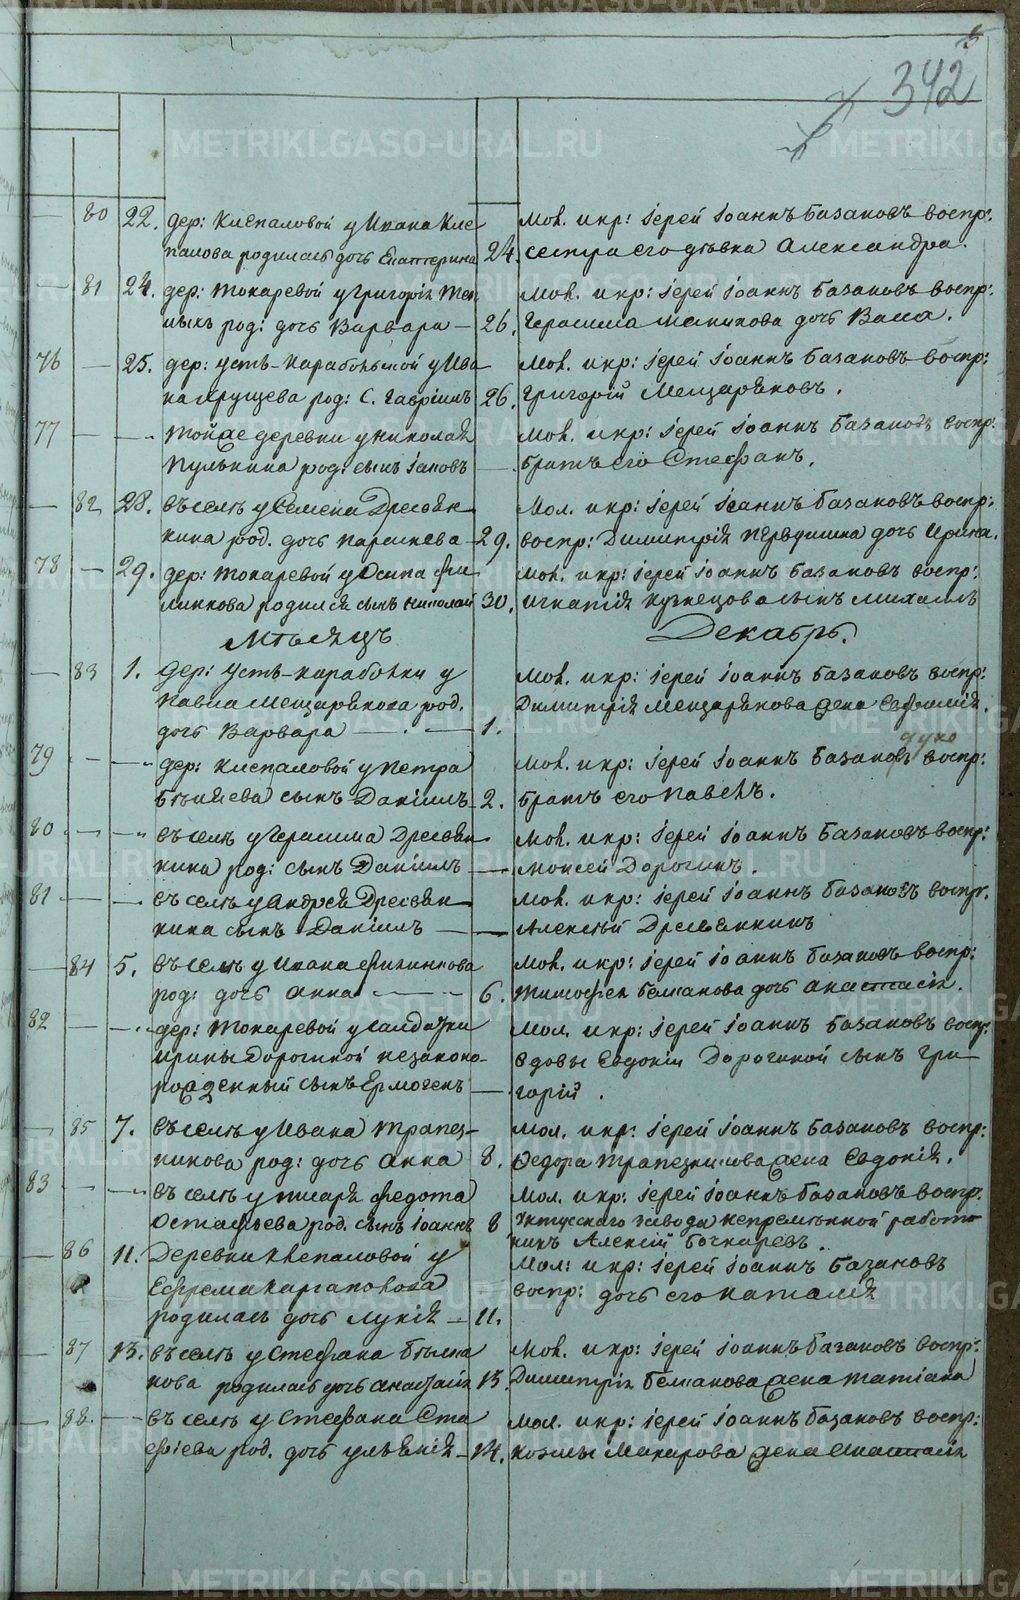 342
80 22. дер: Кислаловой у Ивана Кис
лалова родилась дочь Екатерина 24.
Мол. и кр: Іерей Іоаннъ Базановъ воспр:
сестра его дѣвка Александра.
81 24. дер: Токаревой у Григорія
род: дочь Варвара — 26.
Мол. и кр: Іерей Іоаннъ Базановъ воспр:
Герасима дочь Васса.
76 — 25. дер: Усть-Карабольской у Ива
на Хрущева род: С. Гавріилъ 26.
Мол. и кр: Іерей Іоаннъ Базановъ воспр:
Григорій Мещаряковъ.
77 — — Той же деревни у Николая
Пульнина род: сынъ Іаковъ —
Мол. и кр: Іерей Іоаннъ Базановъ воспр:
братъ его Стефанъ.
— 82 28. въ селѣ у Семена Дресвян
кина род. дочь Параскева — 29.
Мол. и кр: Іерей Іоаннъ Базановъ воспр:
воспр: Димитрія Первушина дочь Ирина.
78 — 29. дер: Токаревой у Осипа Фи
линкова родился сынъ Николай 30.
Мол. и кр: Іерей Іоаннъ Базановъ воспр:
Игнатія Кузнецова сынъ Михаилъ
Мѣсяцъ Декабрь.
— 83 1. дер: Усть-Караболки у
Павла Мещарякова род.
дочь Варвара — 1.
Мол. и кр: Іерей Іоаннъ Базановъ воспр:
Димитрія Мещарякова жена Евфимія.
79 — — дер: Кислаловой у Петра
Бѣляева сынъ Даніилъ — 2.
Мол. и кр: Іерей Іоаннъ Базановъ воспр:
братъ его Павелъ.
80 — — въ селѣ у Герасима Дресвян
кина род: сынъ Даніилъ —
Мол. и кр: Іерей Іоаннъ Базановъ воспр:
Моисей Дорогинъ.
81 — — въ селѣ у Андрея Дресвян
кина сынъ Даніилъ —
Мол. и кр: Іерей Іоаннъ Базановъ воспр.
Алексѣй Дресвянкинъ
— 84 5. въ селѣ у Ивана Филинкова
род: дочь Анна — 6.
Мол. и кр: Іерей Іоаннъ Базановъ воспр:
Тимофея Белканова дочь Анастасія.
82 — — дер: Токаревой у Салдатки
Ирины Дорогиной незаконо-
рожденный сынъ Ермогенъ —
Мол. и кр: Іерей Іоаннъ Базановъ воспр:
вдовы Евдокіи Дорогиной сынъ Гри-
горій.
— 85 7. въ селѣ у Ивана Трапез-
никова род: дочь Анна 8.
Мол. и кр: Іерей Іоаннъ Базановъ воспр:
Ѳедора Трапезникова жена Евдокія.
83 — — въ селѣ у писаря Федота
Остафьева род. сынъ Іоаннъ 8
Мол. и кр: Іерей Іоаннъ Базановъ воспр.
Уктусскаго завода непремѣнной работ
никъ Алексій Бочкаревъ.
— 86 11. Деревни Кислаловой у
Ефрема Каргаполова
родилась дочь Лукія — 11.
Мол: и кр: Іерей Іоаннъ Базановъ
воспр: дочь его Наталія
— 87 13. въ селѣ у Стефана Бѣлка
нова родилась дочь Анафасія 13.
Мол. и кр: Іерей Іоаннъ Базановъ воспр:
Димитрія Белканова жена Татіана
— 88. — въ селѣ у Стефана Ста
фіева род. дочь Ульянія — 14.
Мол. и кр: Іерей Іоаннъ Базановъ воспр:
Козьмы Макарова жена Анастасія
METRIKI.GASO-URAL.RU